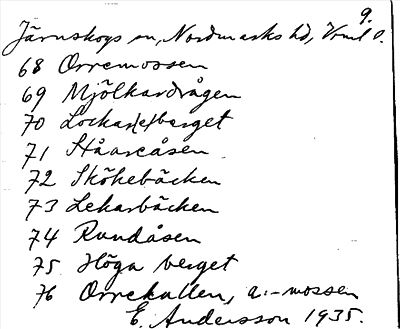 9.
Järnskogs sn, Nordmarks hd, Vrml.
68 Orremossen
69 Mjölkardrågen
70 Lockar(e)berget
71 Ståaråsen
72 Skökebäcken
73 Lekarbäcken
74 Rundåsen
75 Höga berget
76 Orrekullen, a:-mossen
E. Andersson 1935.